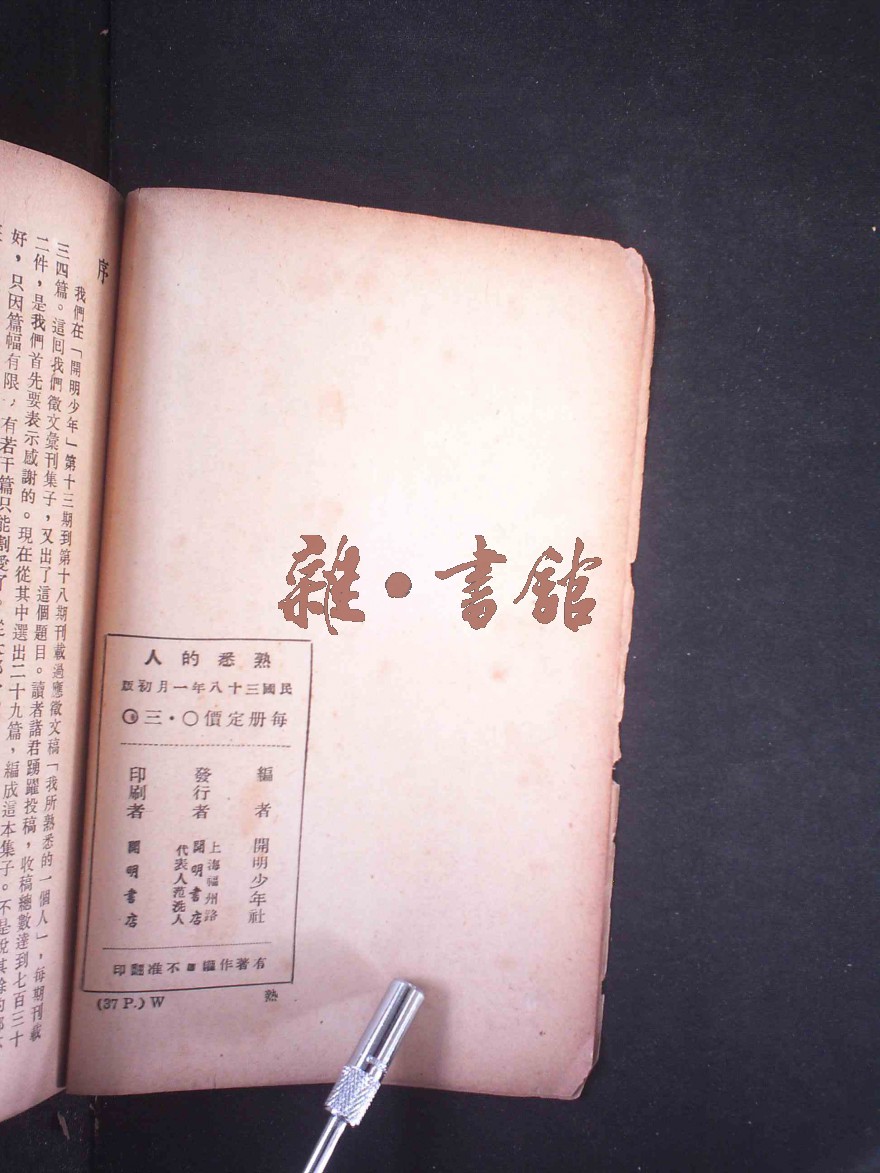 序
我們在「開明少年」第十三期到第十八期刊載過應徵文稿「我所熟悉的一個人」，每期刊載
三四篇。這回我們徵文彙刊集子，又出了這個題目。讀者諸君踴躍投稿，收稿總數達到七百三十
二件，是我們首先要表示感謝的。現在從其中選出二十九篇，編成這本集子。不是說其餘的都
好，只因篇幅有限，有若干篇只能割愛了。
雜·書館
熟悉的人
民國三十八年一月初版
每册定價〇·三〇
編者 開明少年社
發行者 上海福州路
開明書店
代表人范洗人
印刷者 開明書店
有著作權■不准翻印
(37 P.) W
熟